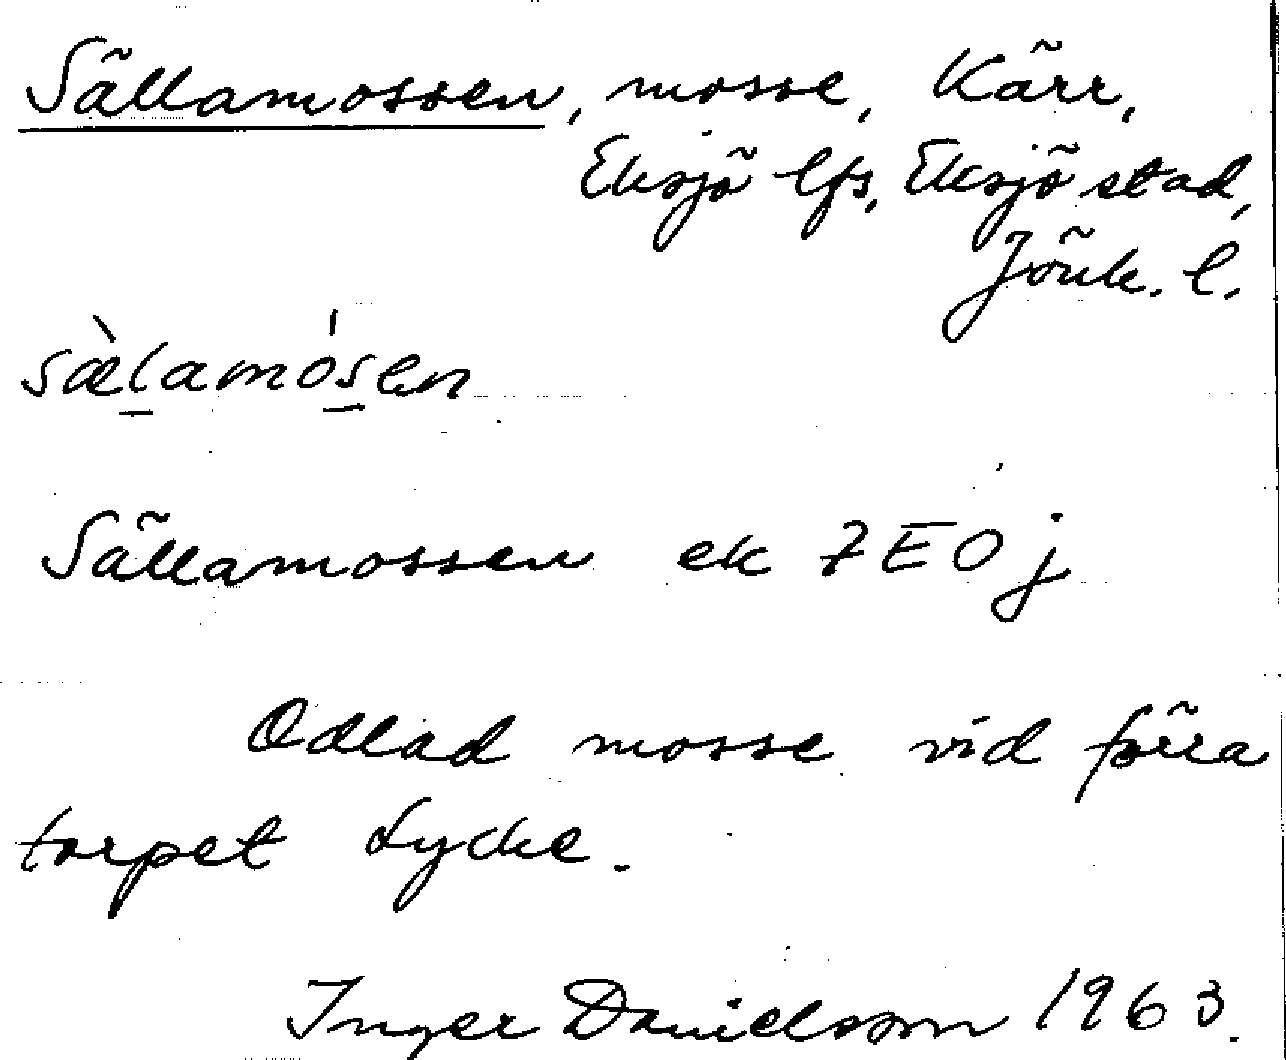 Sällamossen, mosse, Kärr,
Eksjö lfs, Eksjö stad,
Jönk. l.
sæ̀l̠amós̠en
Sällamossen ek 7E0j
Odlad mosse vid förra
torpet Lycke.
Inger Danielsson 1963.